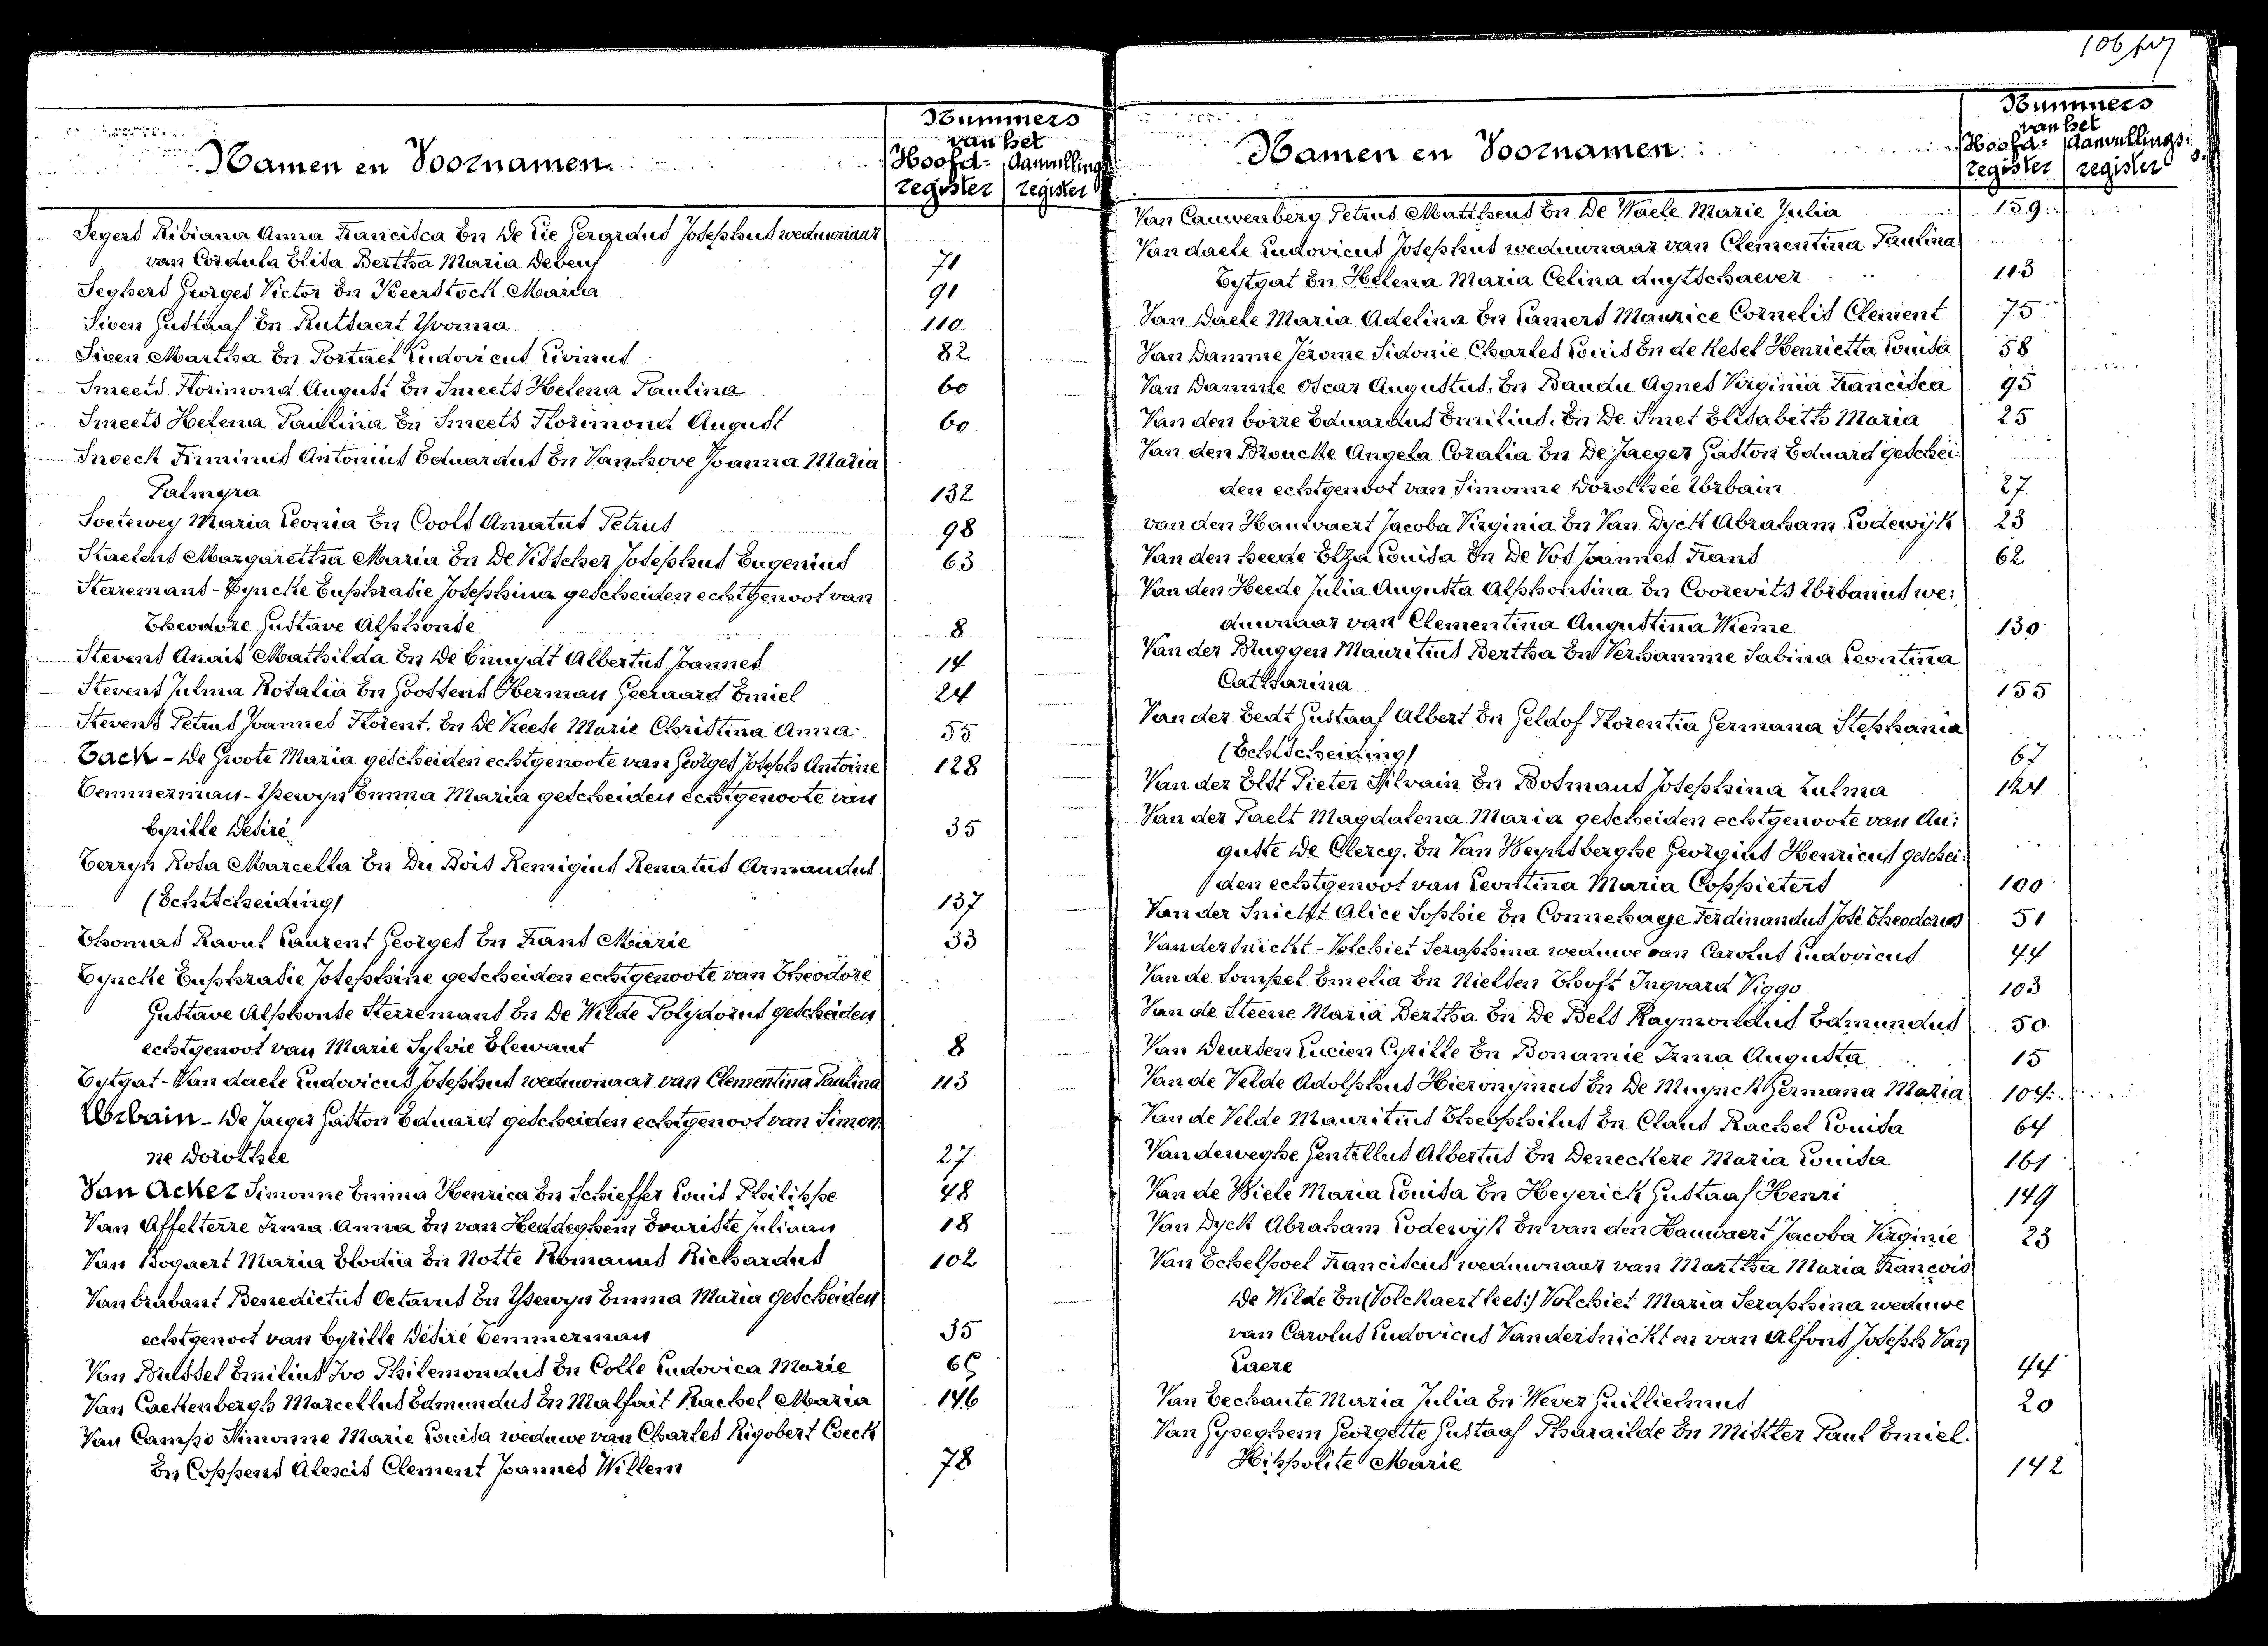 106
Nummers
van het
Namen en Voornamen.
Hoofd- Aanvullings
register register
Segers Bibiana Anna Francisca En De Cie Gergrdus Josephus weduwnaar
van Cordula Elisa Bertha Maria Debeuf 71
Seghers Georges Victor En Keerstock Maria 91
Siven Gustaaf En Rutsaert Yvonna 110
Siven Martha En Portael Ludovicus Livinus 82
Smeets Florimond August En Smeets Helena Paulina 60
Smeets Helena Paulina En Smeets Florimond August 60
Snoeck Firminus Antonius Eduardus En Vanhove Joanna Maria
Palmyra 132
Soetewey Maria Leonia En Cools Amatus Petrus 98
Staelens Margaretha Maria En De Visscher Josephus Eugenius 63
Sterremans-Tyncke Euphrasie Josephina gescheiden echtgenoot van
Theodore Gustave Alphonse 8
Stevens Anais Mathilda En De Cnuydt Albertus Joannes 14
Stevens Julma Rosalia En Goossens Herman Geeraard Emiel 24
Stevens Petrus Joannes Florent. En De Keese Marie Christina Anna 55
Tack - De Groote Maria gescheiden echtgenoote van Georges Joseph Antoine 128
Temmerman-Ysewyn Emma Maria gescheiden echtgenoote van
Cyrille Desiré 35
Terryn Rosa Marcella En Du Bois Remigius Renatus Armandus
(Echtscheiding) 137
Thomas Raoul Laurent Georges En Frans Marie 33
Tyncke Euphrasie Josephine gescheiden echtgenoote van Theodore
Gustave Alphonse Sterremans En De Wilde Polydorus gescheiden
echtgenoot van Marie Sylvie Blewant 8
Tytgat-Van daele Ludovicus Josephus weduwnaar van Clementina Paulina 113
Urbain - De Jaeger Gaston Eduard gescheiden echtgenoot van Simon
ne Dorothée 27
Van Acker Simonne Emma Henrica En Schieffer Louis Philippe 48
Van Affelterre Irma Anna En van Heddeghem Evariste Juliaan 18
Van Bogaert Maria Elodia En Notte Romanus Richardus 102
Van Brabant Benedictus Octavus En Ysewyn Emma Maria gescheiden
echtgenoot van Cyrille Désiré Temmerman 35
Van Brussel Emilius Ivo Philemondus En Colle Ludovica Marie
Van Caekenbergh Marcellus Edmundus En Malfait Rachel Maria 146
Van Campo Simonne Marie Louisa weduwe van Charles Rigobert Coeck
En Coppens Alexis Clement Joannes Willem 78
Nummers
van het
Namen en Voornamen.
Hoofd- Aanvullings-
register register
Van Cauwenberg Petrus Mattheus En De Waele Marie Julia 159
Van daele Ludovicus Josephus weduwnaar van Clementina Paulina
Tytgat En Helena Maria Celina Auytschaever 113
Van Daele Maria Adelina En Lamers Maurice Cornelis Clement 75
Van Damme Jérome Sidonie Charles Louis En de Kesel Henrietta Louisa 58
Van Damme Oscar Augustus. En Baudu Agnes Virginia Francisca 95
Van den borre Eduardus Emilius. En De Smet Elisabeth Maria 25
Van den Broucke Angela Coralia En De Jaeger Gaston Eduard geschei-
den echtgenoot van Simonne Dorothée Urbain 27
van den Hauwaert Jacoba Virginia En Van Dyck Abraham Lodewijk 23
Van den heede Elza Louisa En De Vos Joannes Frans 62
Van den Heede Julia Augusta Alphonsina En Coorevits Urbanus we-
duwnaar van Clementina Augustina Wieme 130
Van der Bruggen Mauritius Bertha En Verhamme Sabina Leontina
Catharina 155
Van der Eedt Gustaaf Albert En Geldof Florentia Germana Stephania
(Echtscheiding) 67
Van der Elst Pieter Silvain En Bosmans Josephina Zulma 124
Van der Paelt Magdalena Maria gescheiden echtgenoote van Au-
guste De Clercq. En Van Weynsberghe Georgius Henricus geschei-
den echtgenoot van Leontina Maria Coppieters 100
Van der Snickt Alice Sophie En Connehaye Ferdinandus José Theodorus 51
Vandersnickt-Volchiet Seraphina weduwe van Carolus Ludovicus 44
Van de Sompel Emelia En Nielsen Tooft Ingvard Viggo 103
Van de Steene Maria Bertha En De Bels Raymondus Edmundus 50
Van Deursen Lucien Cyrille En Bonamie Irma Augusta 15
Van de Velde Adolphus Hieronymus En De Muynck Germana Maria 104
Van de Velde Mauritius Theophilus En Claus Rachel Louisa 64
Vandeweghe Gentellus Albertus En Deneckere Maria Louisa 161
Van de Wiele Maria Louisa En Heyerick Gustaaf Henri 149
Van Dyck Abraham Lodewijk En van den Hauwaert Jacoba Virginie 23
Van Echelpoel Franciscus weduwnaar van Martha Maria François
De Wilde En (Volckaert lees:) Volchiet Maria Seraphina weduwe
van Carolus Ludovicus Vandersnickt en van Alfons Joseph Van
Laere 44
Van Eechaute Maria Julia En Wever Guillielmus 20
Van Gyseghem Georgette Gustaaf Pharailde En Mistler Paul Emiel
Hippolite Marie 142